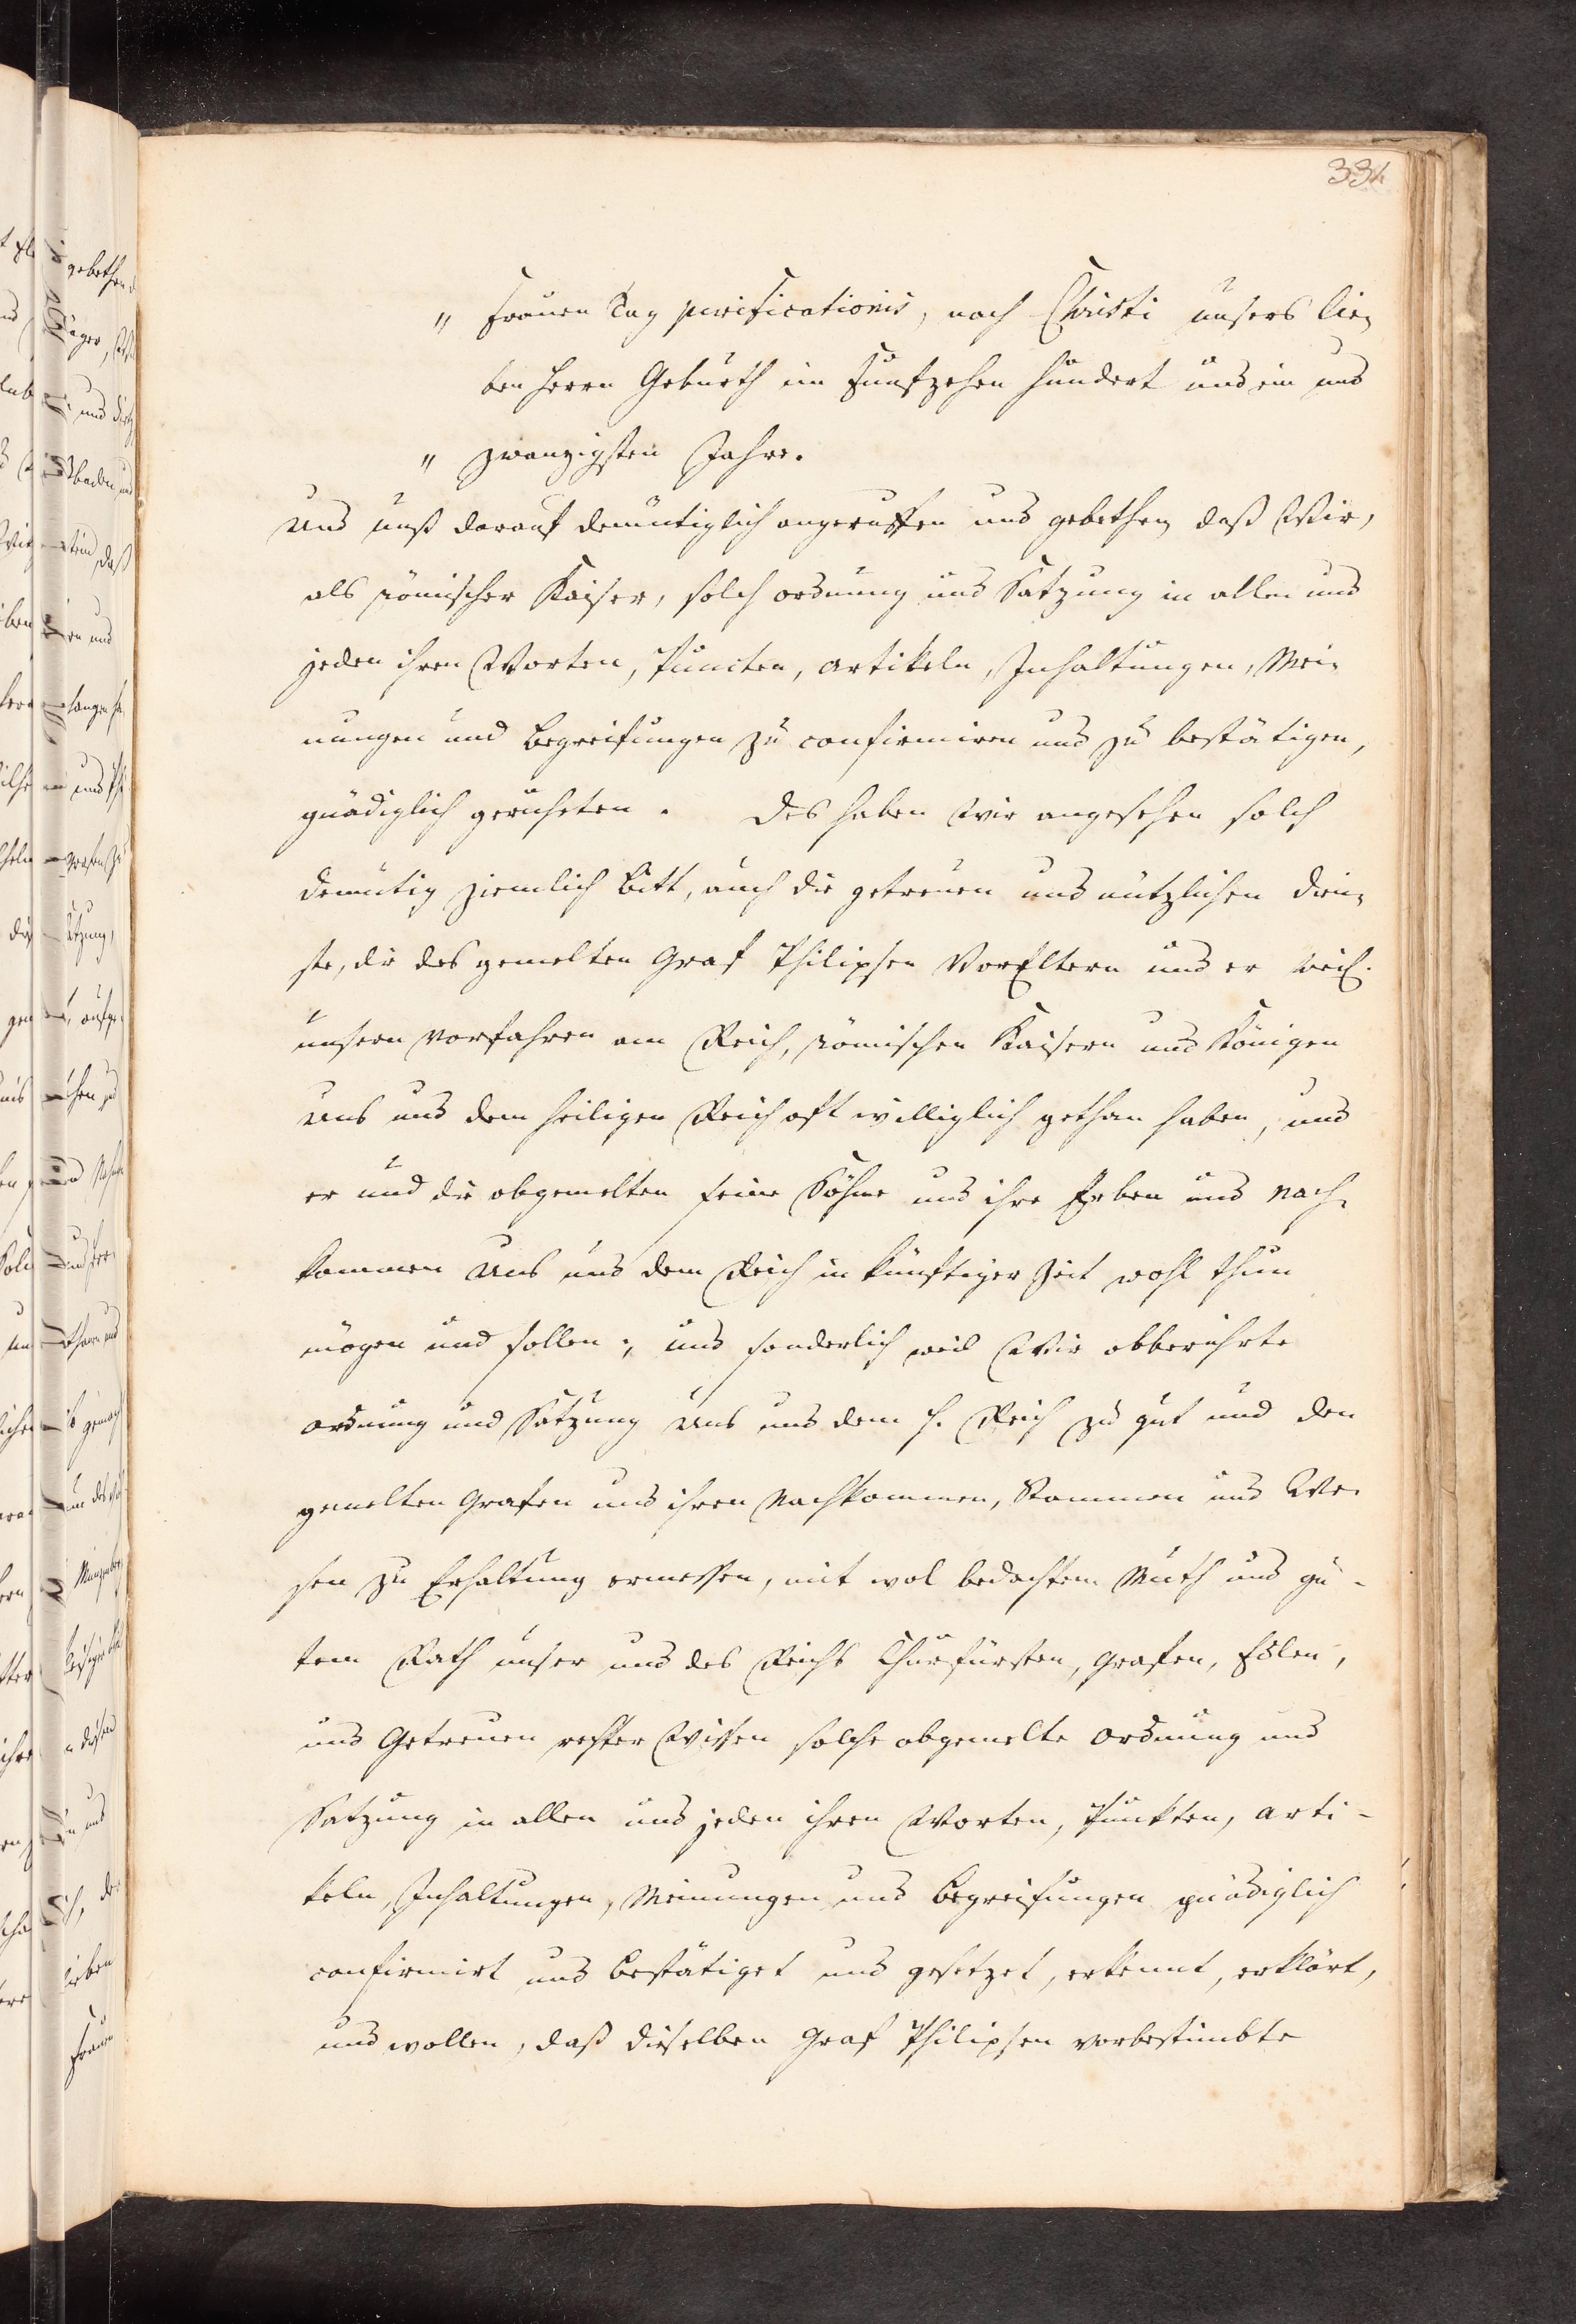 334
" Frauen Tag purificationis, nach Christi unsers lie-
ben Herrn Geburth im Funfzehen hundert und ein und
" zwanzigsten Jahre.
Und unß darauf demüntiglich angeruffen und gebethen, daß Wir,
als römischer Kaiser, solch ordnung und Satzung in allen und
jeden ihren Worten, Puncten, artikeln, Inhaltungen, Mei-
nungen und Begreifungen zu confirmiren und zu bestätigen,
gnädiglich geruheten. Des haben Wir angesehen solch
demütig ziemlich Bitt, auch die getreuen und nützlichen Dien-
ste, die des gemelten Graf Philipsen VorEltern und er weil.
unsern Vorfahren am Reich, römischen Kaisern und Königen
Uns und dem heiligen Reich oft williglich gethan haben, und
er und die obgemelten seine Söhne und ihre Erben und Nach-
kommen Uns und dem Reich in künftiger Zeit wohl thun
mögen und sollen; und sonderlich weil Wir obberührte
ordnung und Satzung Uns und dem h. Reich zu gut und den
gemelten Grafen und ihren Nachkommen, Stammen und We-
sen zu Erhaltung ermessen, mit wol bedachtem Muth und gu-
tem Rath unser und des Reichs Churfürsten, Grafen, Edlen,
und Getreuen rechter Wissen solche obgemelte Ordnung und
Satzung in allen und jeden ihren Worten, Punkten, arti-
keln, Inhaltungen, Meinungen und Begreifungen gnädiglich
confirmirt und bestätiget und gesetzet, erkennt, erklärt,
und wollen, daß dieselben Graf Philipsen vorbestimbte